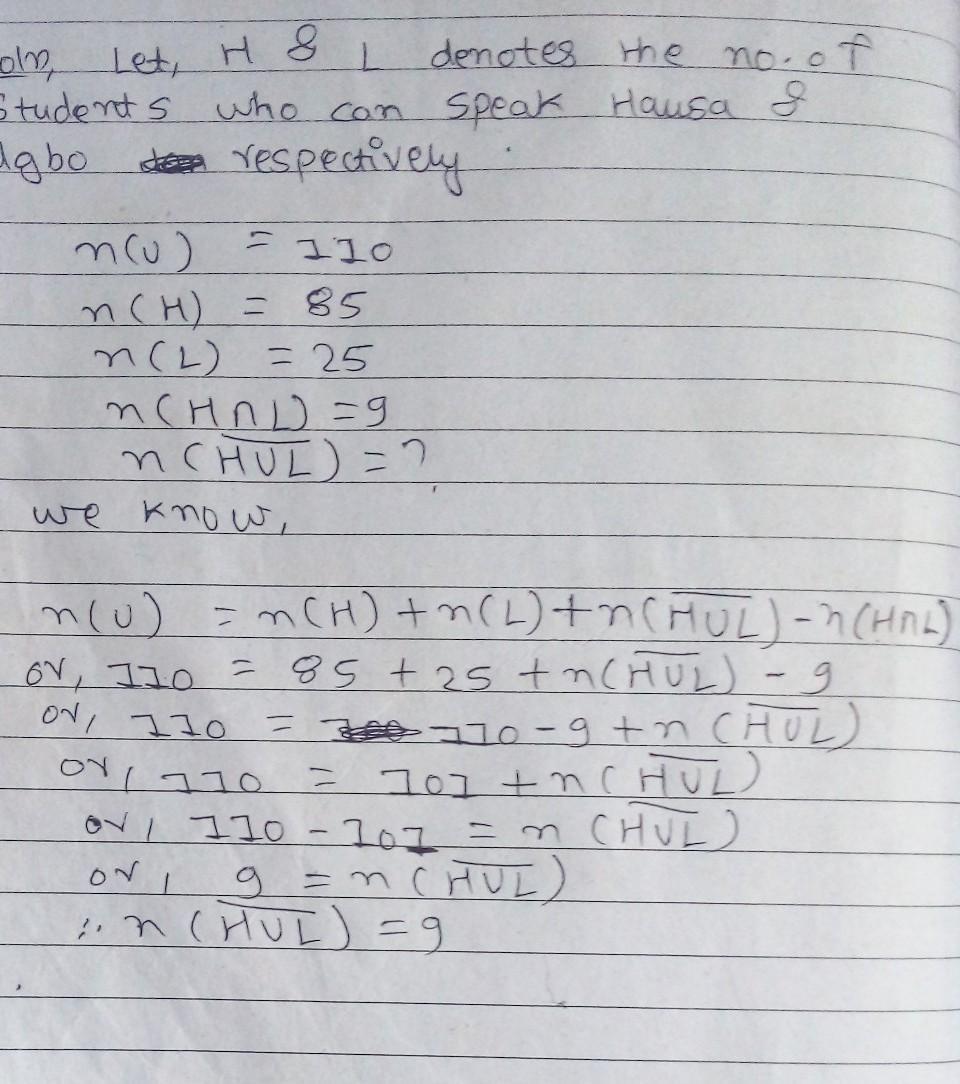 oln, Let, H & L denotes the no. of
Students who can speak Hausa &
Igbo respectively.
n(U) = 110
n(H) = 85
n(L) = 25
n(H∩L) = 9
n(\overline{H∪L}) = ?
we know,
n(U) = n(H) + n(L) + n(\overline{H∪L}) - n(H∩L)
or, 110 = 85 + 25 + n(\overline{H∪L}) - 9
or, 110 = 110 - 9 + n(\overline{H∪L})
or, 110 = 101 + n(\overline{H∪L})
or, 110 - 101 = n(\overline{H∪L})
or, 9 = n(\overline{H∪L})
∴ n(\overline{H∪L}) = 9